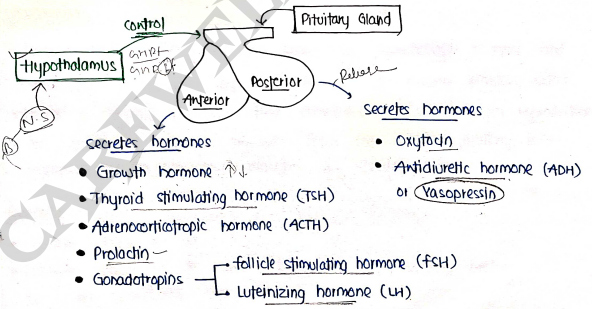 Control
Pituitary Gland
Hypothalamus
GHRF
N.S
Anterior
Posterior
Release
secretes hormones
• Oxytocin
• Antidiuretic hormone (ADH)
or Vasopressin
secretes hormones
• Growth hormone ↑↓
• Thyroid stimulating hormone (TSH)
• Adrenocorticotropic hormone (ACTH)
• Prolactin
• Gonadotropins
• follicle stimulating hormone (FSH)
• Luteinizing hormone (LH)